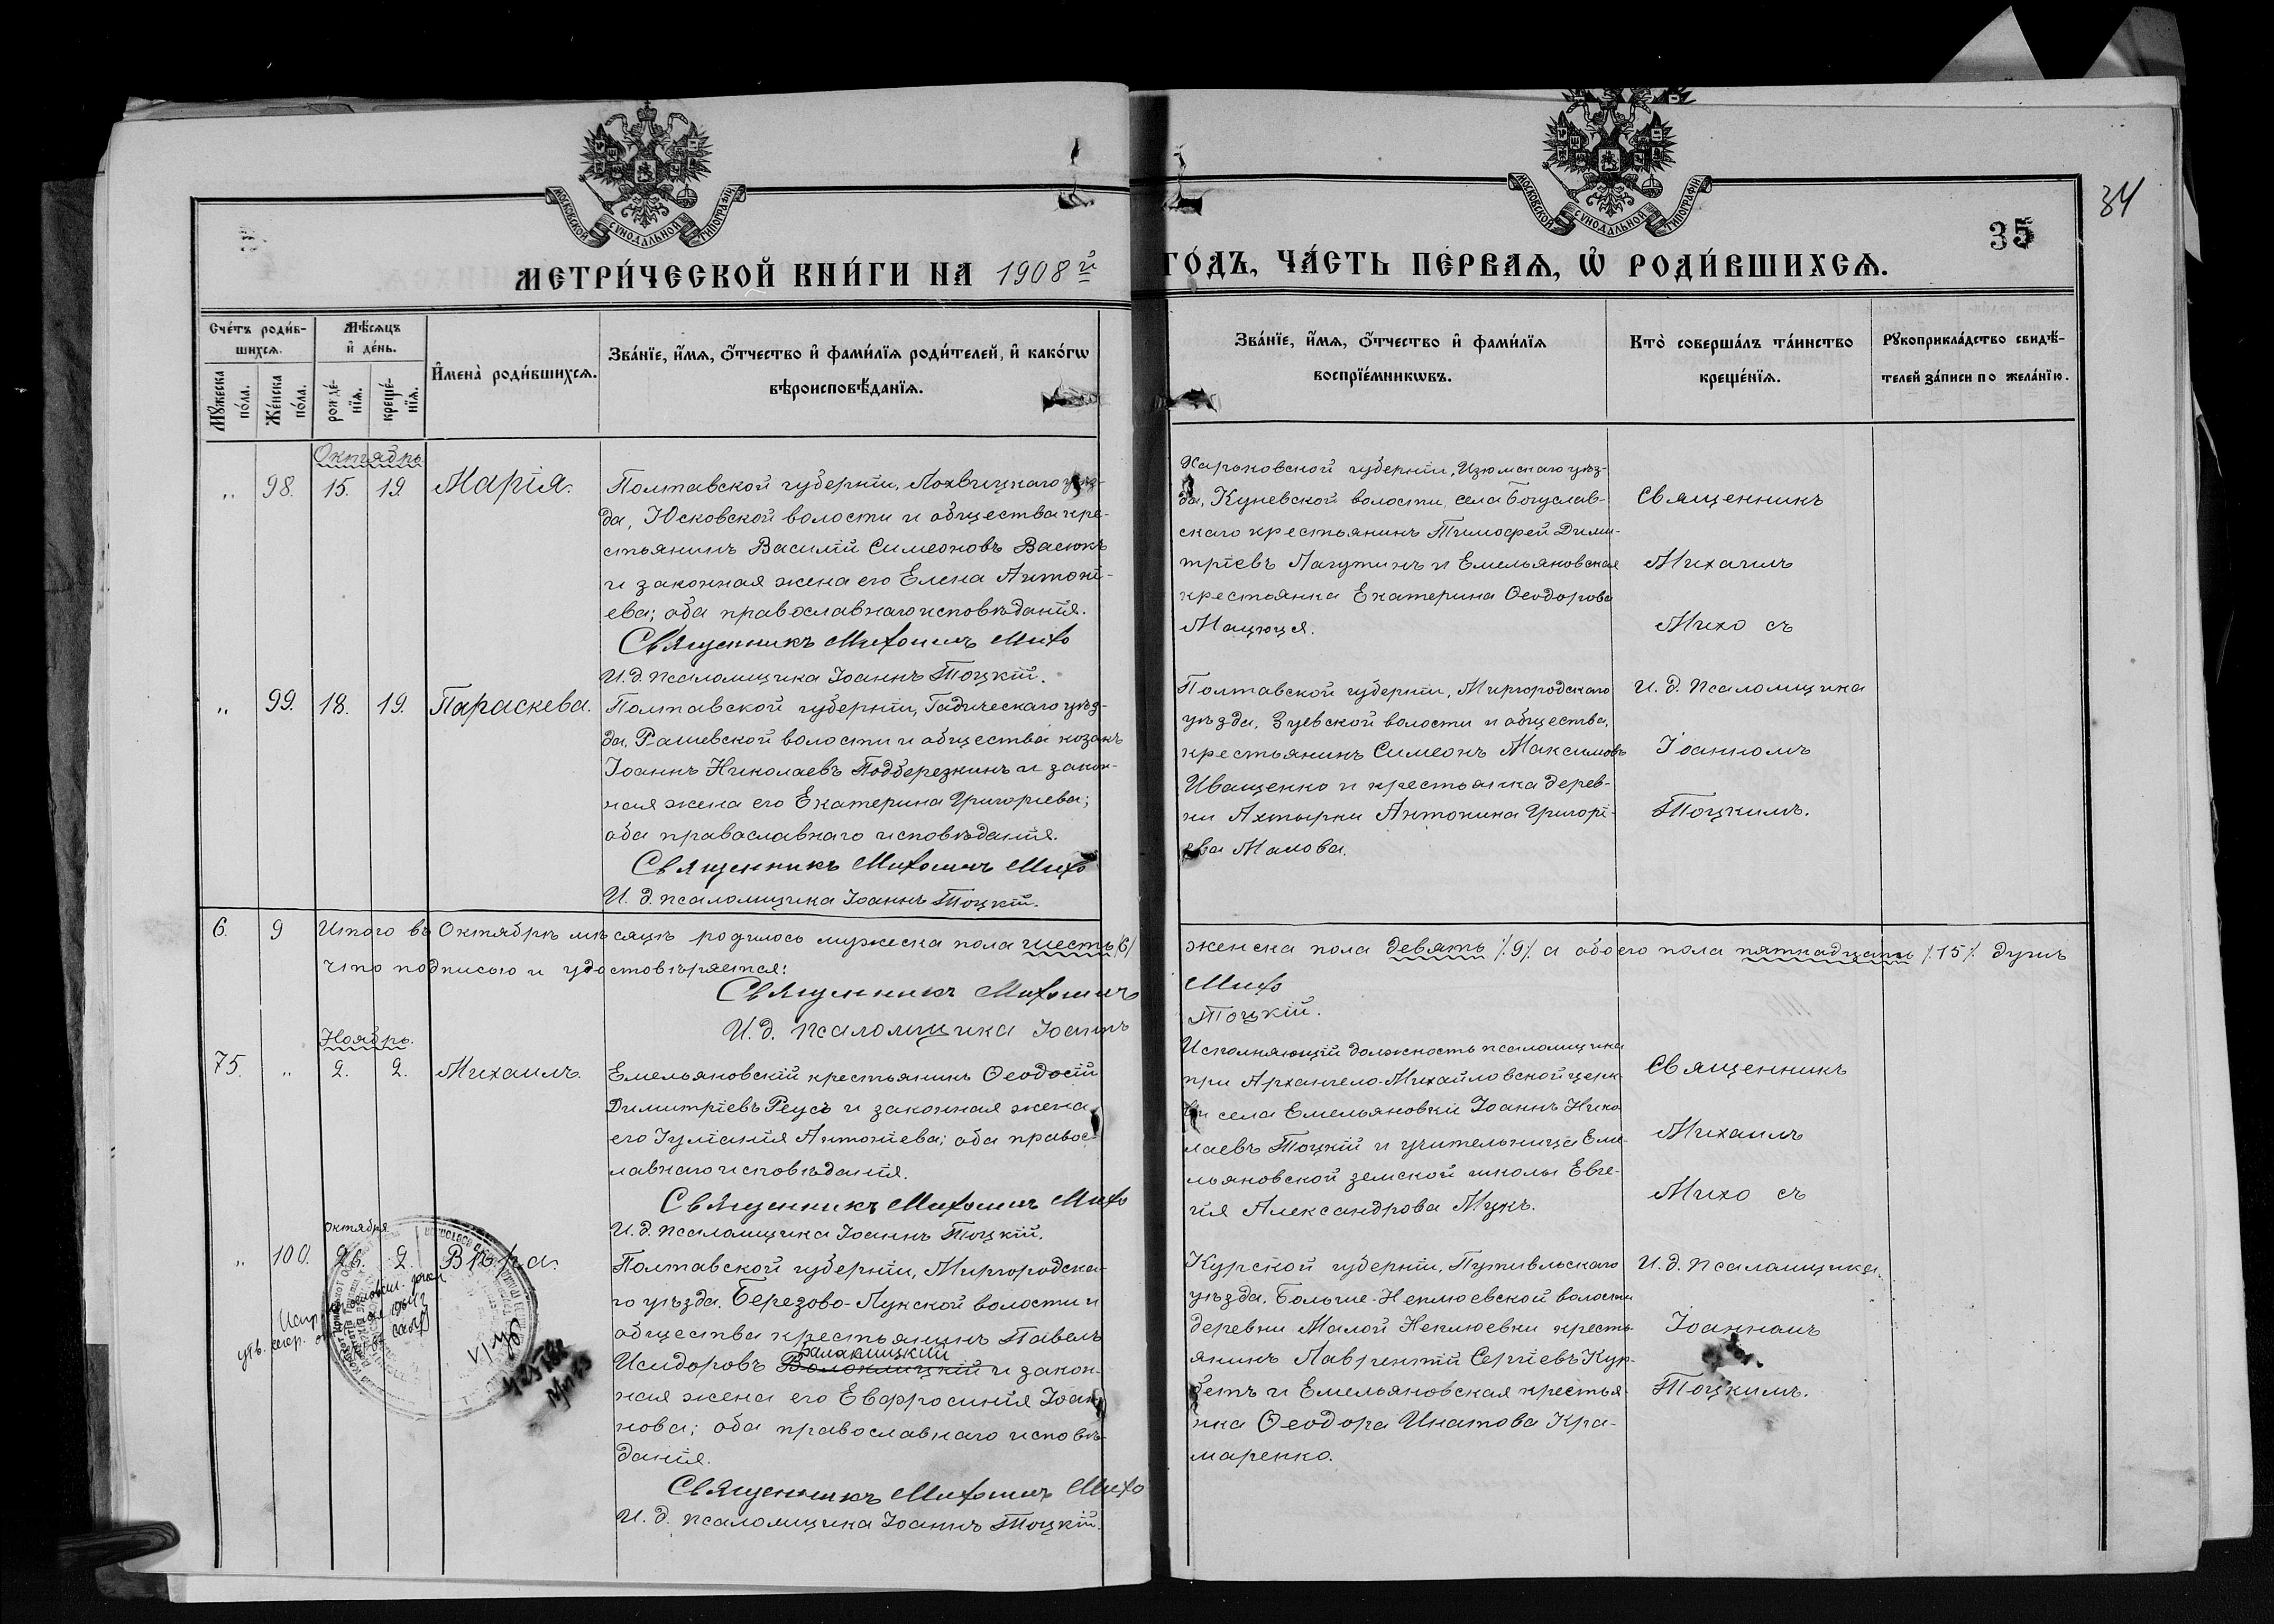 МОСКОВСКОЙ СѴНОДАЛЬНОЙ ТИПОГРАФІИ
МОСКОВСКОЙ СѴНОДАЛЬНОЙ ТИПОГРАФІИ
34
35
МЕТРИ́ЧЕСКОЙ КНИ́ГИ НА 1908й
ГО́ДЪ, ЧА́СТЬ ПЕ́РВАѦ, Ѡ҆ РОДИ́ВШИХСѦ.
Сче́тъ роди́в-
шихсѧ.
Мѣ́сѧцъ
и҆ де́нь.
Мꙋ́жеска
по́ла.
Же́нска
по́ла.
рожде́-
нїѧ.
креще́-
нїѧ.
И҆мена̀ роди́вшихсѧ.
Зва́нїе, и҆́мѧ, ѻ҆́тчество и҆ фами́лїѧ роди́телей, и҆ како́гѡ
вѣроисповѣ́данїѧ.
Зва́нїе, и҆́мѧ, ѻ҆́тчество и҆ фами́лїѧ
воспрїе́мникѡвъ.
Кто̀ соверша́лъ та́инство
креще́нїѧ.
Рꙋкоприкла́дство свидѣ́-
телей за́писи по жела́нїю.
Октябрь
„ 98. 15. 19. Марія.
Полтавской губерніи, Лохвицкаго уѣз-
да, Юсковской волости и общества кре-
стьянинъ Василій Симеоновъ Васюкъ
и законная жена его Елена Антоні-
ева; оба православнаго исповѣданія.
Священникъ Михаилъ Михо
И. д. псаломщика Іоаннъ Тоцкій.
Харьковской губерніи, Изюмскаго уѣз-
да, Куневской волости, села Богуслав-
скаго крестьянинъ Тимоѳей Дими-
тріевъ Лагутинъ и Емельяновская
крестьянка Екатерина Ѳеодорова
Мацюця.
Священникъ
Михаилъ
Михо съ
„ 99. 18. 19. Параскева.
Полтавской губерніи, Гадяческаго уѣз-
да, Рашевской волости и общества козакъ
Іоаннъ Николаевъ Подберезкинъ и закон-
ная жена его Екатерина Григоріева;
оба православнаго исповѣданія.
Священникъ Михаилъ Михо
И. д. псаломщика Іоаннъ Тоцкій.
Полтавской губерніи, Миргородскаго
уѣзда, Зуевской волости и общества,
крестьянинъ Симеонъ Максимовъ
Иващенко и крестьянка дерев-
ни Ахтырки Антонина Григорі-
ева Малова.
И. д. псаломщика
Іоанномъ
Тоцкимъ.
6. 9 Итого въ Октябрѣ мѣсяцѣ родилось мужеска пола шесть /6/
женска пола девять /.9/. а обоего пола пятнадцать /.15/. душъ
что подписью и удостовѣряется:
Священникъ Михаилъ
Михо
И. д. псаломщика Іоаннъ
Тоцкій.
Ноябрь.
75. „ 2. 2. Михаилъ.
Емельяновскій крестьянинъ Ѳеодосій
Димитріевъ Реусъ и законная жена
его Іуліанія Антоніева; оба правос-
лавнаго исповѣданія.
Священникъ Михаилъ Михо
И. д. псаломщика Іоаннъ Тоцкій.
Исполняющій должность псаломщика
при Архангело-Михайловской церк-
ви села Емельяновки Іоаннъ Нико-
лаевъ Тоцкій и учительница Еме-
льяновской земской школы Евге-
нія Александрова Мукъ.
Священникъ
Михаилъ
Михо съ
октября
„ 100. 26. 2. Вѣра.
Полтавской губерніи, Миргородска-
го уѣзда, Березово-Лукской волости и
общества крестьянинъ Павелъ
Балаклицкій
Исидоровъ Волоклицкій и закон-
ная жена его Евфросинія Іоан-
нова; оба православнаго исповѣ-
данія.
Священникъ Михаилъ Михо
И. д. псаломщика Іоаннъ Тоцкій.
Курской губерніи, Путивльскаго
уѣзда, Больше-Неплюевской волости
деревни Малой Неплюевки кресть-
янинъ Лаврентій Сергіевъ Кур-
бетъ и Емельяновская крестья-
нка Ѳеодора Игнатова Кра-
маренко.
И. д. псаломщика
Іоанномъ
Тоцкимъ.